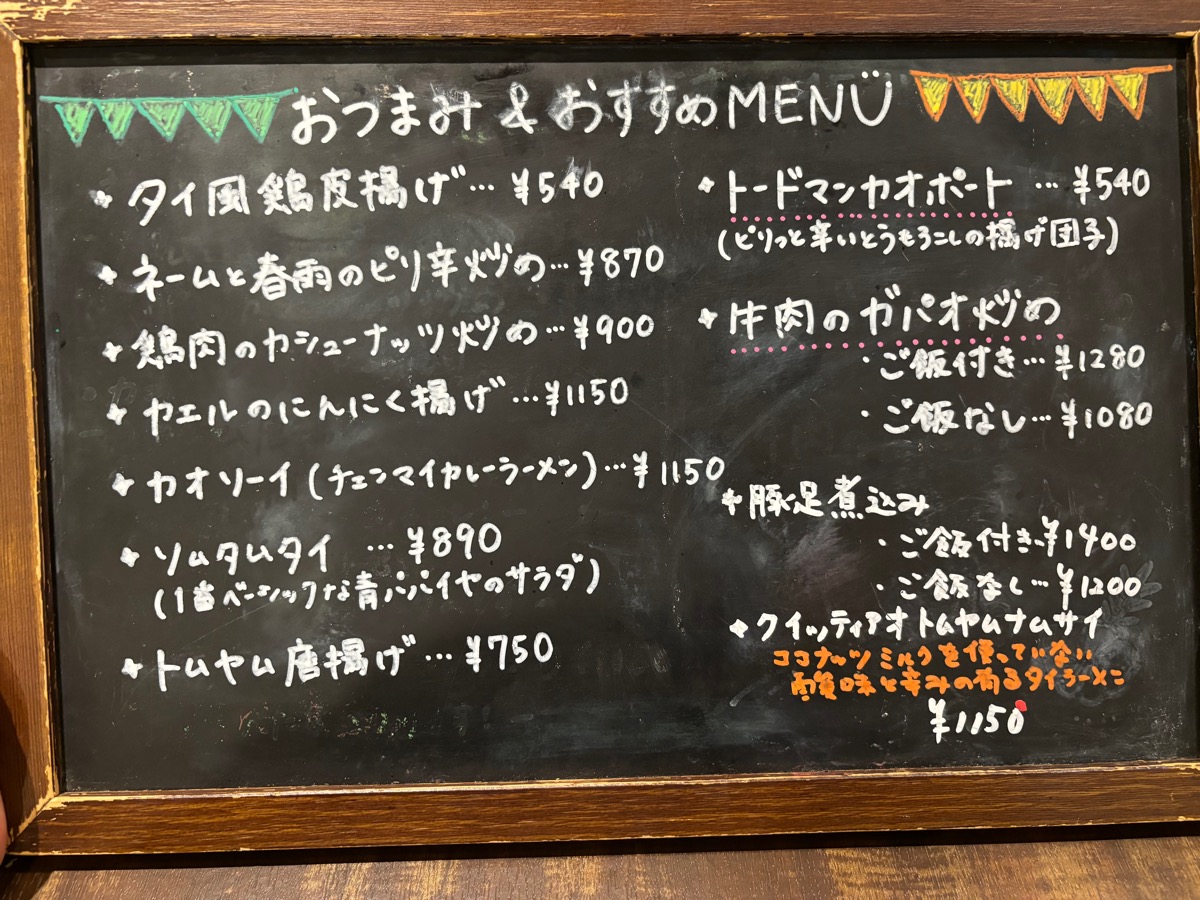 おつまみ & おすすめMENU
タイ風鶏皮揚げ…¥540
ネームと春雨のピリ辛炒め…¥870
鶏肉のカシューナッツ炒め…¥900
カエルのにんにく揚げ…¥1150
カオソーイ(チェンマイカレーラーメン)…¥1150
ソムタムタイ …¥890
(1番ベーシックな青パパイヤのサラダ)
トムヤム唐揚げ…¥750
トードマンカオポート …¥540
(ピリっと辛いとうもろこしの揚げ団子)
牛肉のガパオ炒め
・ご飯付き…¥1280
・ご飯なし…¥1080
豚足煮込み
・ご飯付き…¥1400
・ご飯なし…¥1200
クイッティアオトムヤムナムサイ
ココナッツミルクを使っていない
酸味と辛みの有るタイラーメン
¥1150